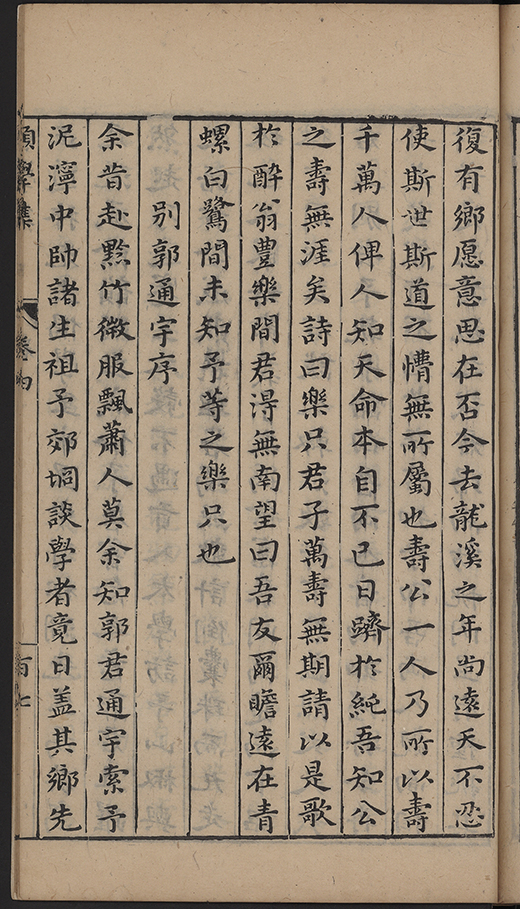 復有鄉愿意思在否今去龍溪之年尚遠天不忍
使斯世斯道之懵無所屬也壽公一人乃所以壽
千萬人俾人知天命本自不已日躋於純吾知公
之壽無涯矣詩曰樂只君子萬壽無期請以是歌
於醉翁豐樂間君得無南望曰吾友爾瞻遠在青
螺白鷺間未知予等之樂只也
別郭通宇序
余昔赴黔竹微服飄蕭人莫余知郭君通宇索予
泥濘中帥諸生祖予郊坰談學者竟日盖其鄉先
願學集
卷四
百七